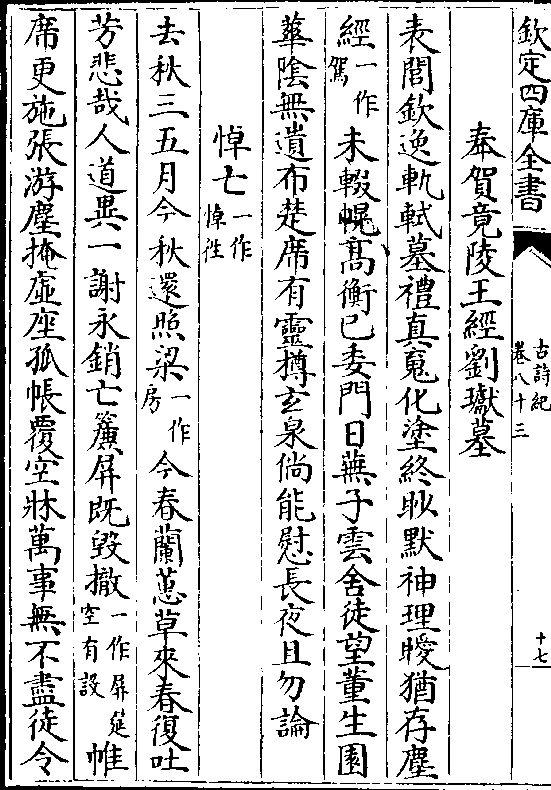 欽定四庫全書
古詩紀
卷八十三
十七
奉賀竟陵王經劉瓛墓
表閭欽逸軌軾墓禮真䰟化塗終眇默神理曖猶存塵
經一作駕未輟幌高衡已委門日蕪子雲舍徒望董生園
華陰無遺布楚席有靈樽玄泉倘能慰長夜且勿論
悼亡一作悼徃
去秋三五月今秋還照梁一作房今春蘭蕙草來春復吐
芳悲哉人道異一謝永銷亡簾屏既毀撤一作屏筵空有設帷
席更施張游塵掩虛座孤帳覆空牀萬事無不盡徒令